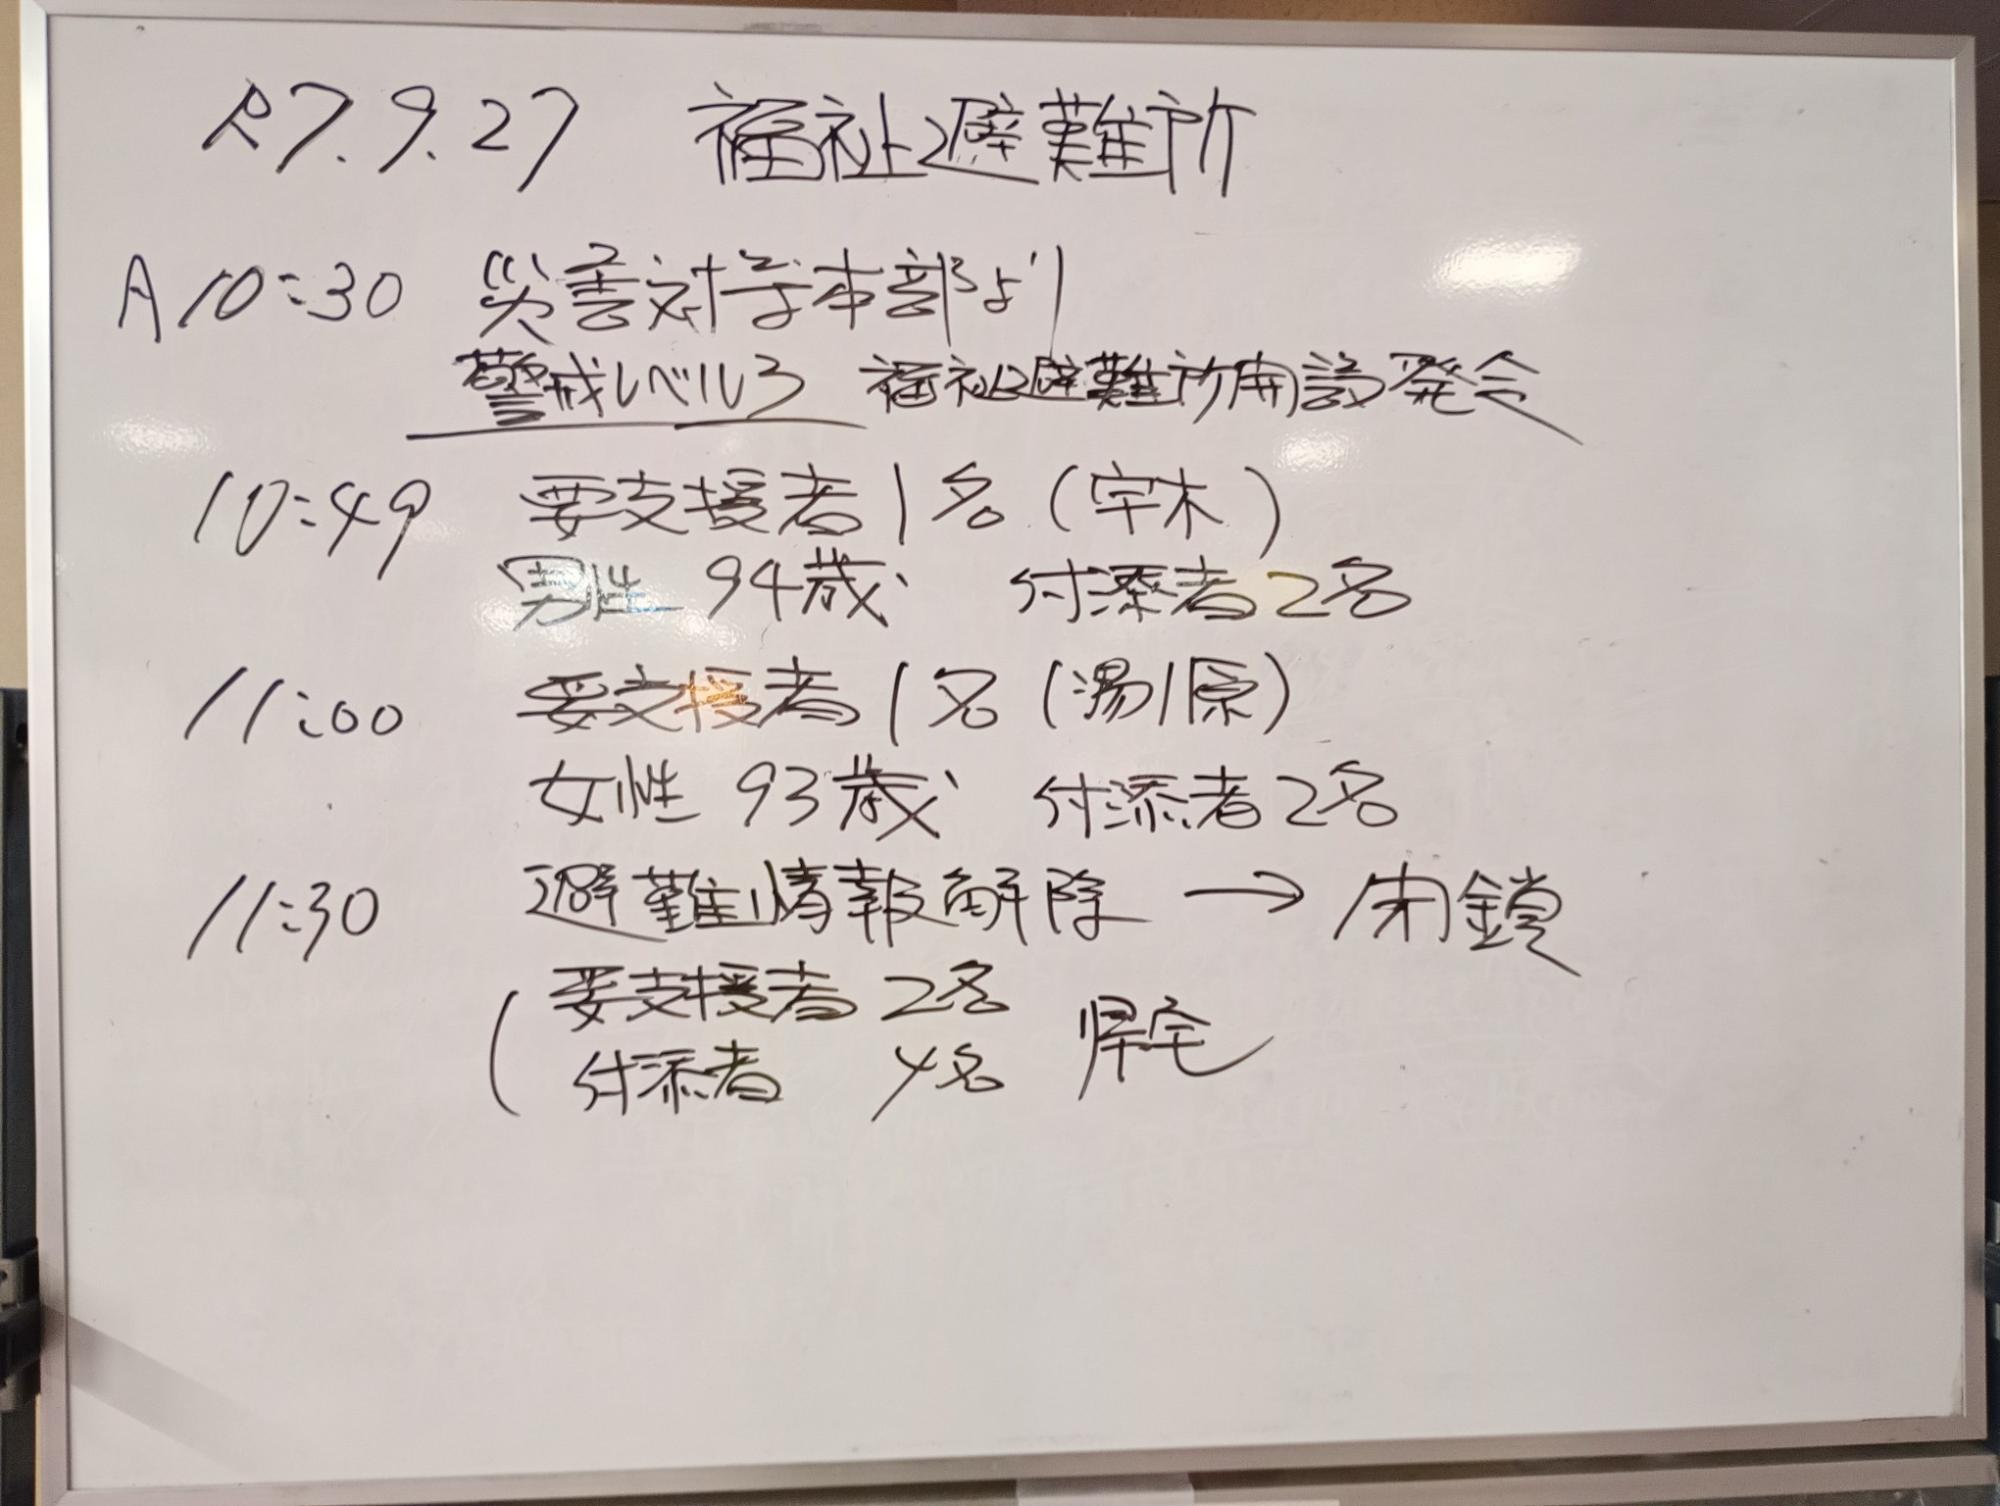 R7.9.27 福祉避難所
A10:30 災害対策本部より
警戒レベル3 福祉避難所開設発令
10:49 要支援者1名(宇木)
男性 94歳 付添者2名
11:00 要支援者1名(湯原)
女性 93歳 付添者2名
11:30 避難情報解除 → 閉鎖
(要支援者 2名
付添者 4名 帰宅